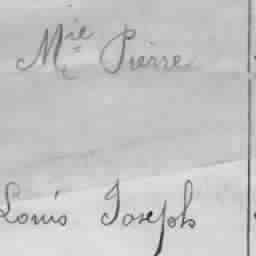 Mie Pierre
Louis Joseph